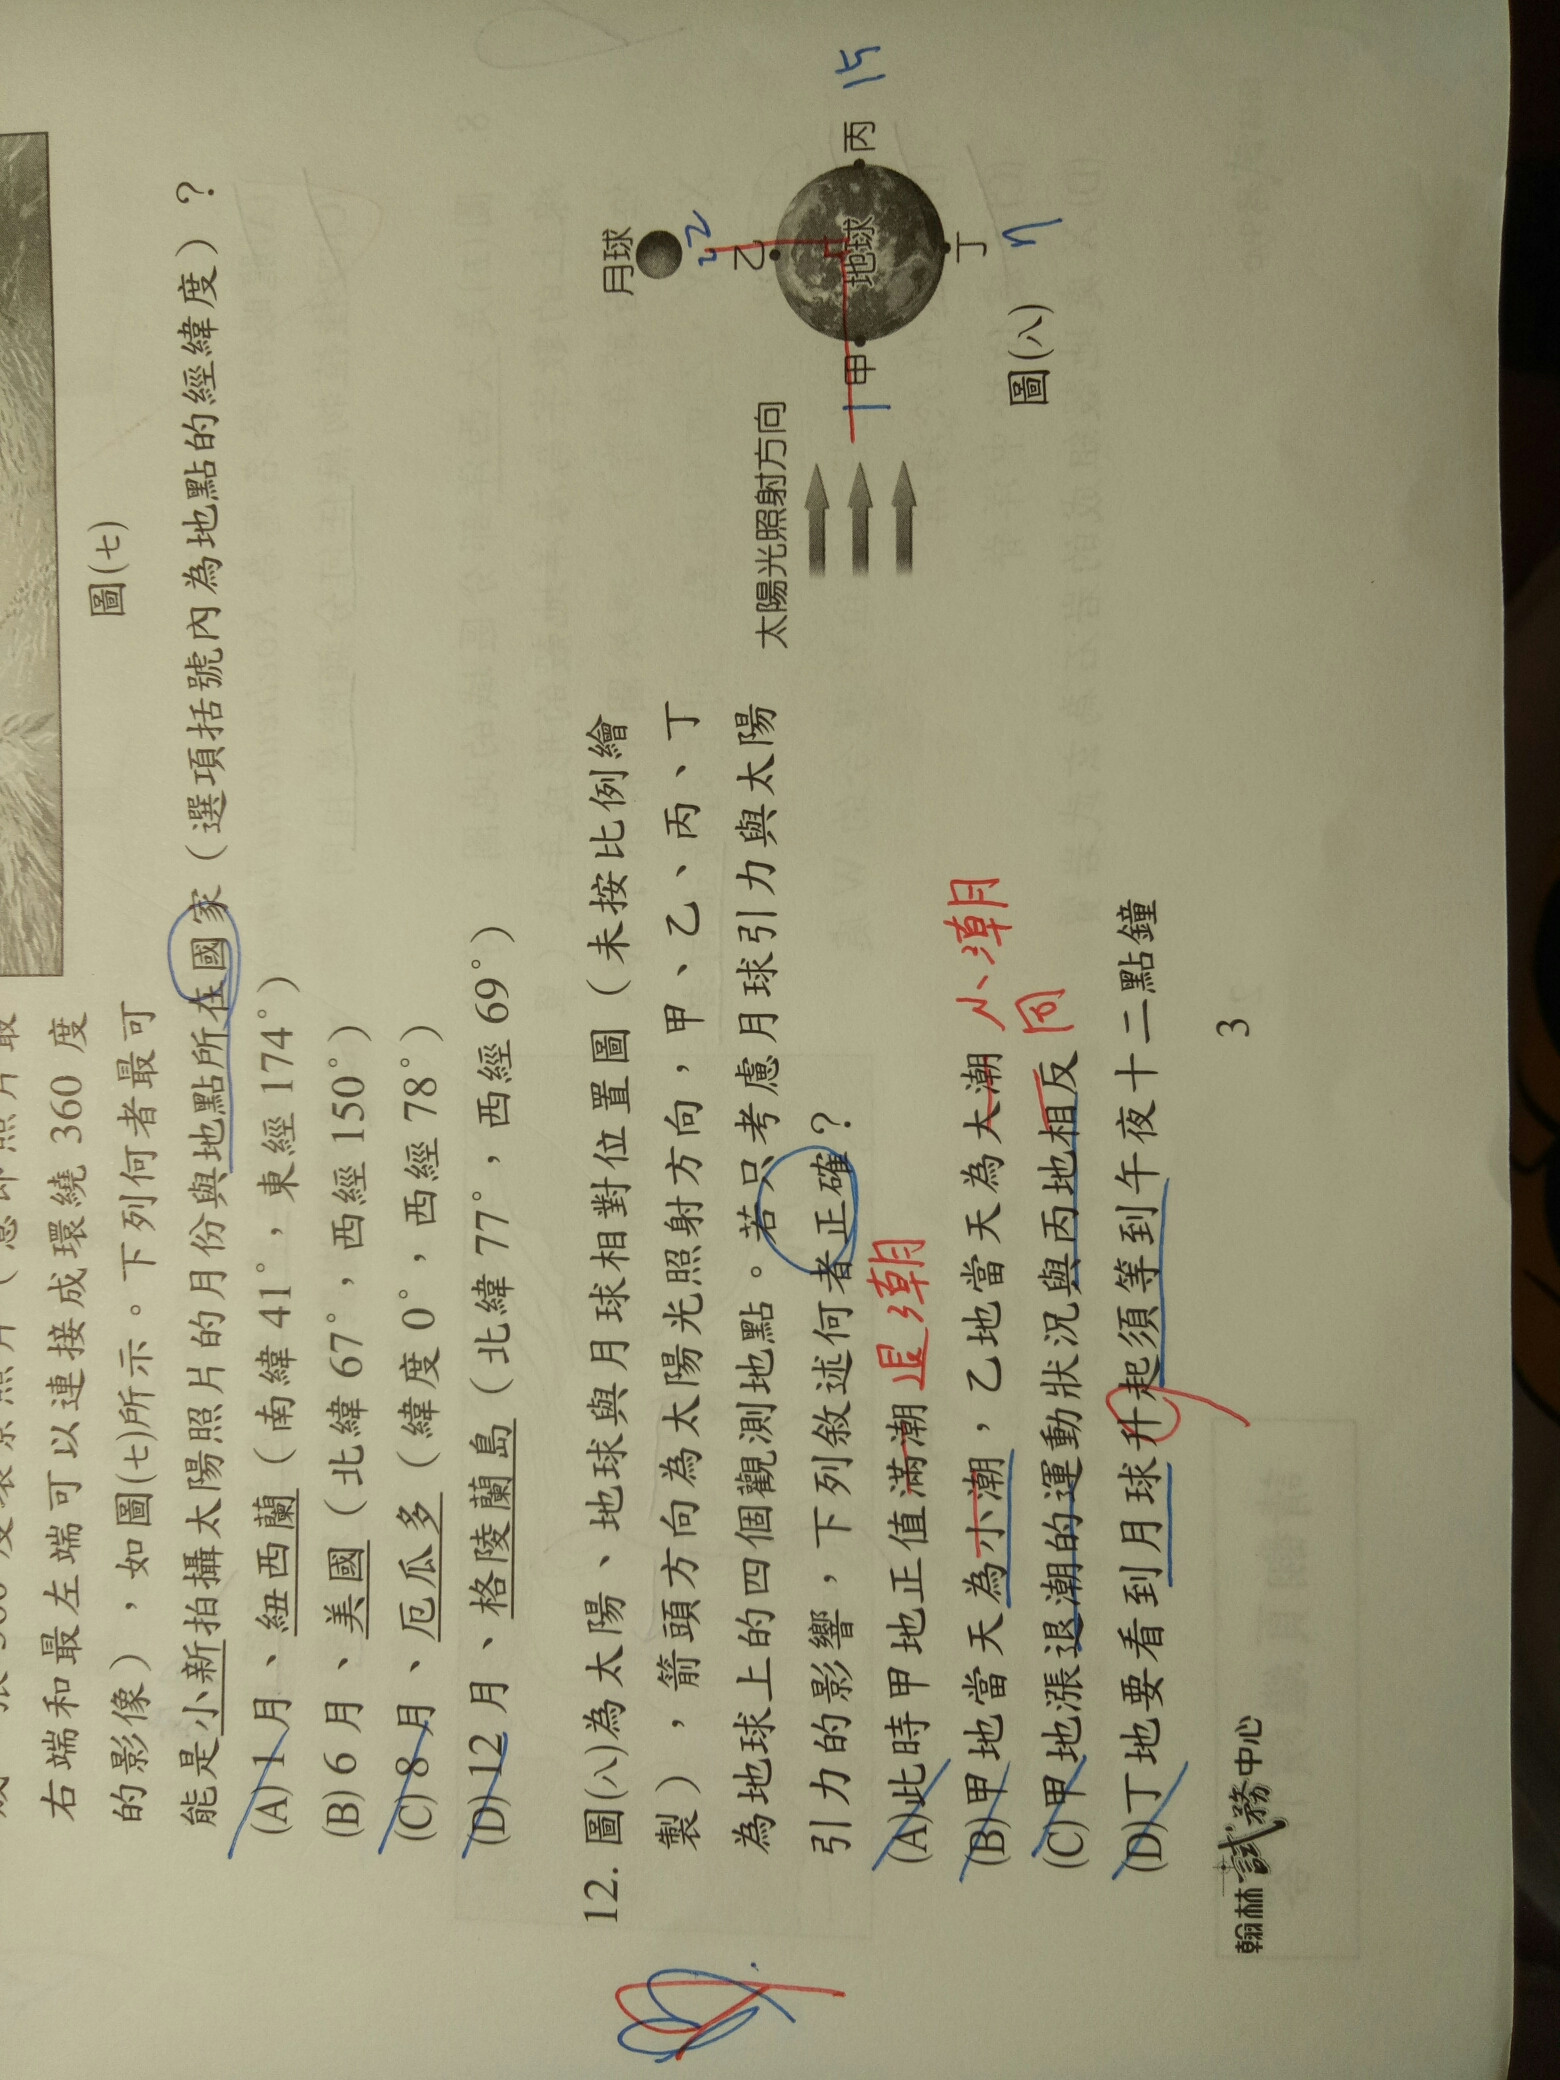 圖(七)
右端和最左端可以連接成環繞 360 度
的影像),如圖(七)所示。下列何者最可
能是小新拍攝太陽照片的月份與地點所在國家(選項括號內為地點的經緯度)?
(A) 1 月、紐西蘭(南緯 41°,東經 174°)
(B) 6 月、美國(北緯 67°,西經 150°)
(C) 8 月、厄瓜多(緯度 0°,西經 78°)
(D) 12 月、格陵蘭島(北緯 77°,西經 69°)
12. 圖(八)為太陽、地球與月球相對位置圖(未按比例繪
製),箭頭方向為太陽光照射方向,甲、乙、丙、丁
為地球上的四個觀測地點。若只考慮月球引力與太陽
引力的影響,下列敘述何者正確?
(A)此時甲地正值滿潮 退潮
(B)甲地當天為小潮,乙地當天為大潮 小潮
(C)甲地漲退潮的運動狀況與丙地相反 同
(D)丁地要看到月球升起須等到午夜十二點鐘
月球
乙
太陽光照射方向
甲
地球
丙
丁
圖(八)
翰林試務中心
3